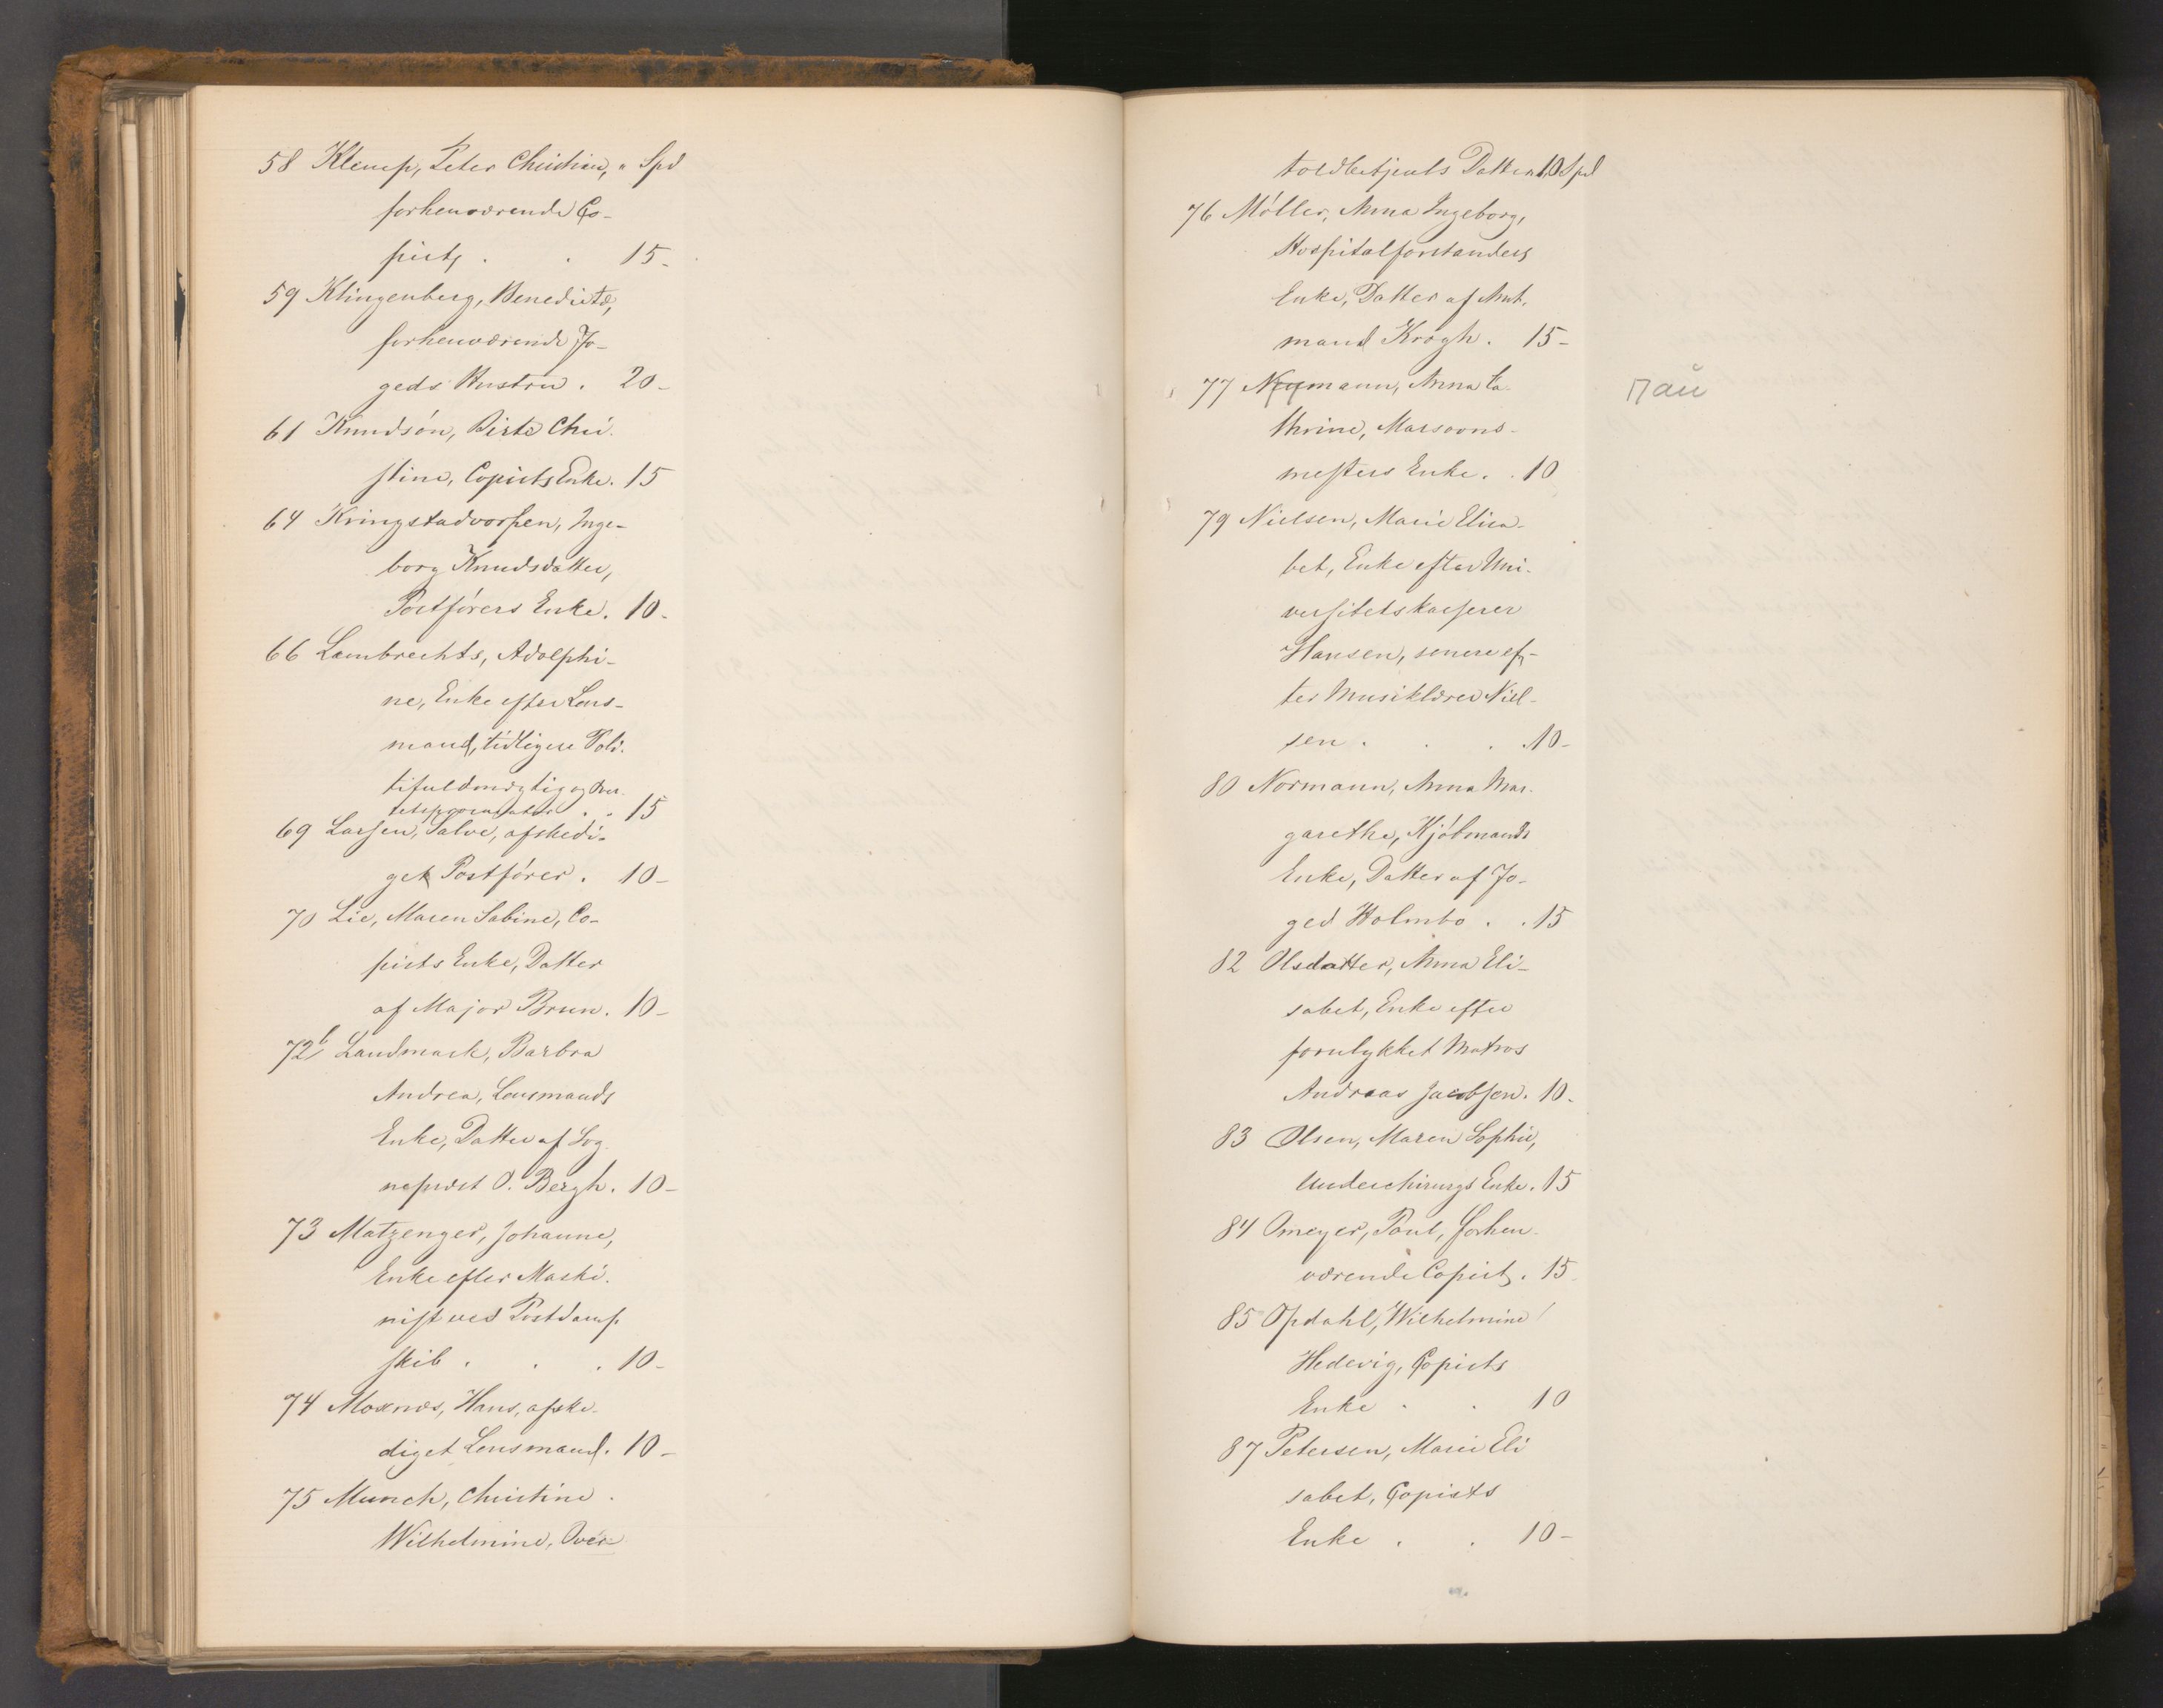 58 Klemp, Peter Christian, " Spd
forhenværende Co-
pist . . 15-
59 Klingenberg, Benedicte,
forhenværende Fo-
geds Hustru . 20-
61 Knudsøn, Birte Chri-
stine, Copists Enke. 15
64 Kringstadvorpen, Inge-
borg Knudsdatter,
Postførers Enke. 10-
66 Lambrechts, Adolphi-
ne, Enke efter Lens-
mand, tidligere Poli-
tifuldmægtig og Pro-
15
69 Larsen, Salve, afskedi-
get Postfører. 10-
70 Lie, Maren Sabine, Co-
pists Enke, Datter
af Major Brun. 10-
72b Landmark, Barbra
Andrea, Lensmands
Enke, Datter af Sog-
nepræst O. Bergh. 10-
73 Matzenger, Johanne,
Enke efter Maski-
nist ved Postdamp-
skib . . . 10-
74 Moxnæs, Hans, afske-
diget Lensmand. 10-
75 Munch, Christine
Wilhelmine, Over-
toldbetjents Datter 10 Spd
76 Møller, Anna Ingeborg,
Hospitalforstanders
Enke, Datter af Amt-
mand Krogh. 15-
77 Neumann, Anna Ca-
thrine, Marsvons-
mesters Enke. . 10
79 Nielsen, Marie Elisa-
bet, Enke efter Uni-
versitetskasserer
Hansen, senere ef-
ter Musiklærer Niel-
sen . . . 10-
80 Normann, Anna Mar-
garethe, Kjøbmands
Enke, Datter af Fo-
ged Holmbo . . 15
82 Olsdatter, Anna Eli-
sabet, Enke efter
forulykket Matros
Andreas Jacobsen. 10-
83 Olsen, Maren Sophie,
Underchirurgs Enke. 15
84 Omeyer, Poul, forhen-
værende Copist. 15
85 Opdahl, Wilhelmine
Hedevig, Copists
Enke . . 10
87 Petersen, Marie Eli
sabet, Copists
Enke . . 10-